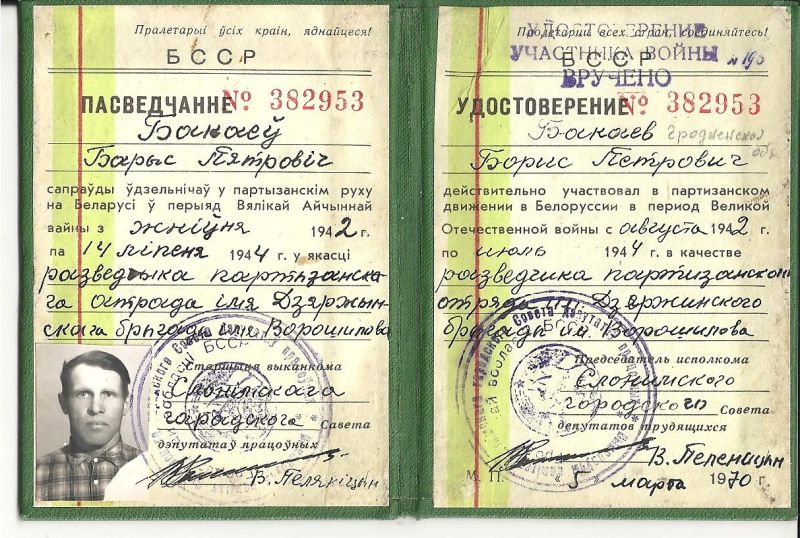 Пралетарыі ўсіх краін, яднайцеся!
БССР
ПАСВЕДЧАННЕ № 382953
Бакаеў
Барыс Пятровіч
сапраўды ўдзельнічаў у партызанскім руху
на Беларусі ў перыяд Вялікай Айчыннай
вайны з жніўня 1942 г.
па 14 ліпеня 1944 г. у якасці
разведчыка партызанска-
га атрада імя Дзяржын-
скага брыгады імя Варашылова
Старшыня выканкома
Слонімскага
гарадскога Савета
дэпутатаў працоўных
Пролетарии всех стран, соединяйтесь!
УДОСТОВЕРЕНИЕ
УЧАСТНИКА ВОЙНЫ
ВРУЧЕНО
БССР
УДОСТОВЕРЕНИЕ № 382953
Бакаев Гродненской обл.
Борис Петрович
действительно участвовал в партизанском
движении в Белоруссии в период Великой
Отечественной войны с августа 1942 г.
по июль 1944 г. в качестве
разведчика партизанского
отряда им. Дзержинского
бригады им. Ворошилова
Председатель исполкома
Слонимского
городского Совета
депутатов трудящихся
М. П. 5 марта 1970 г.